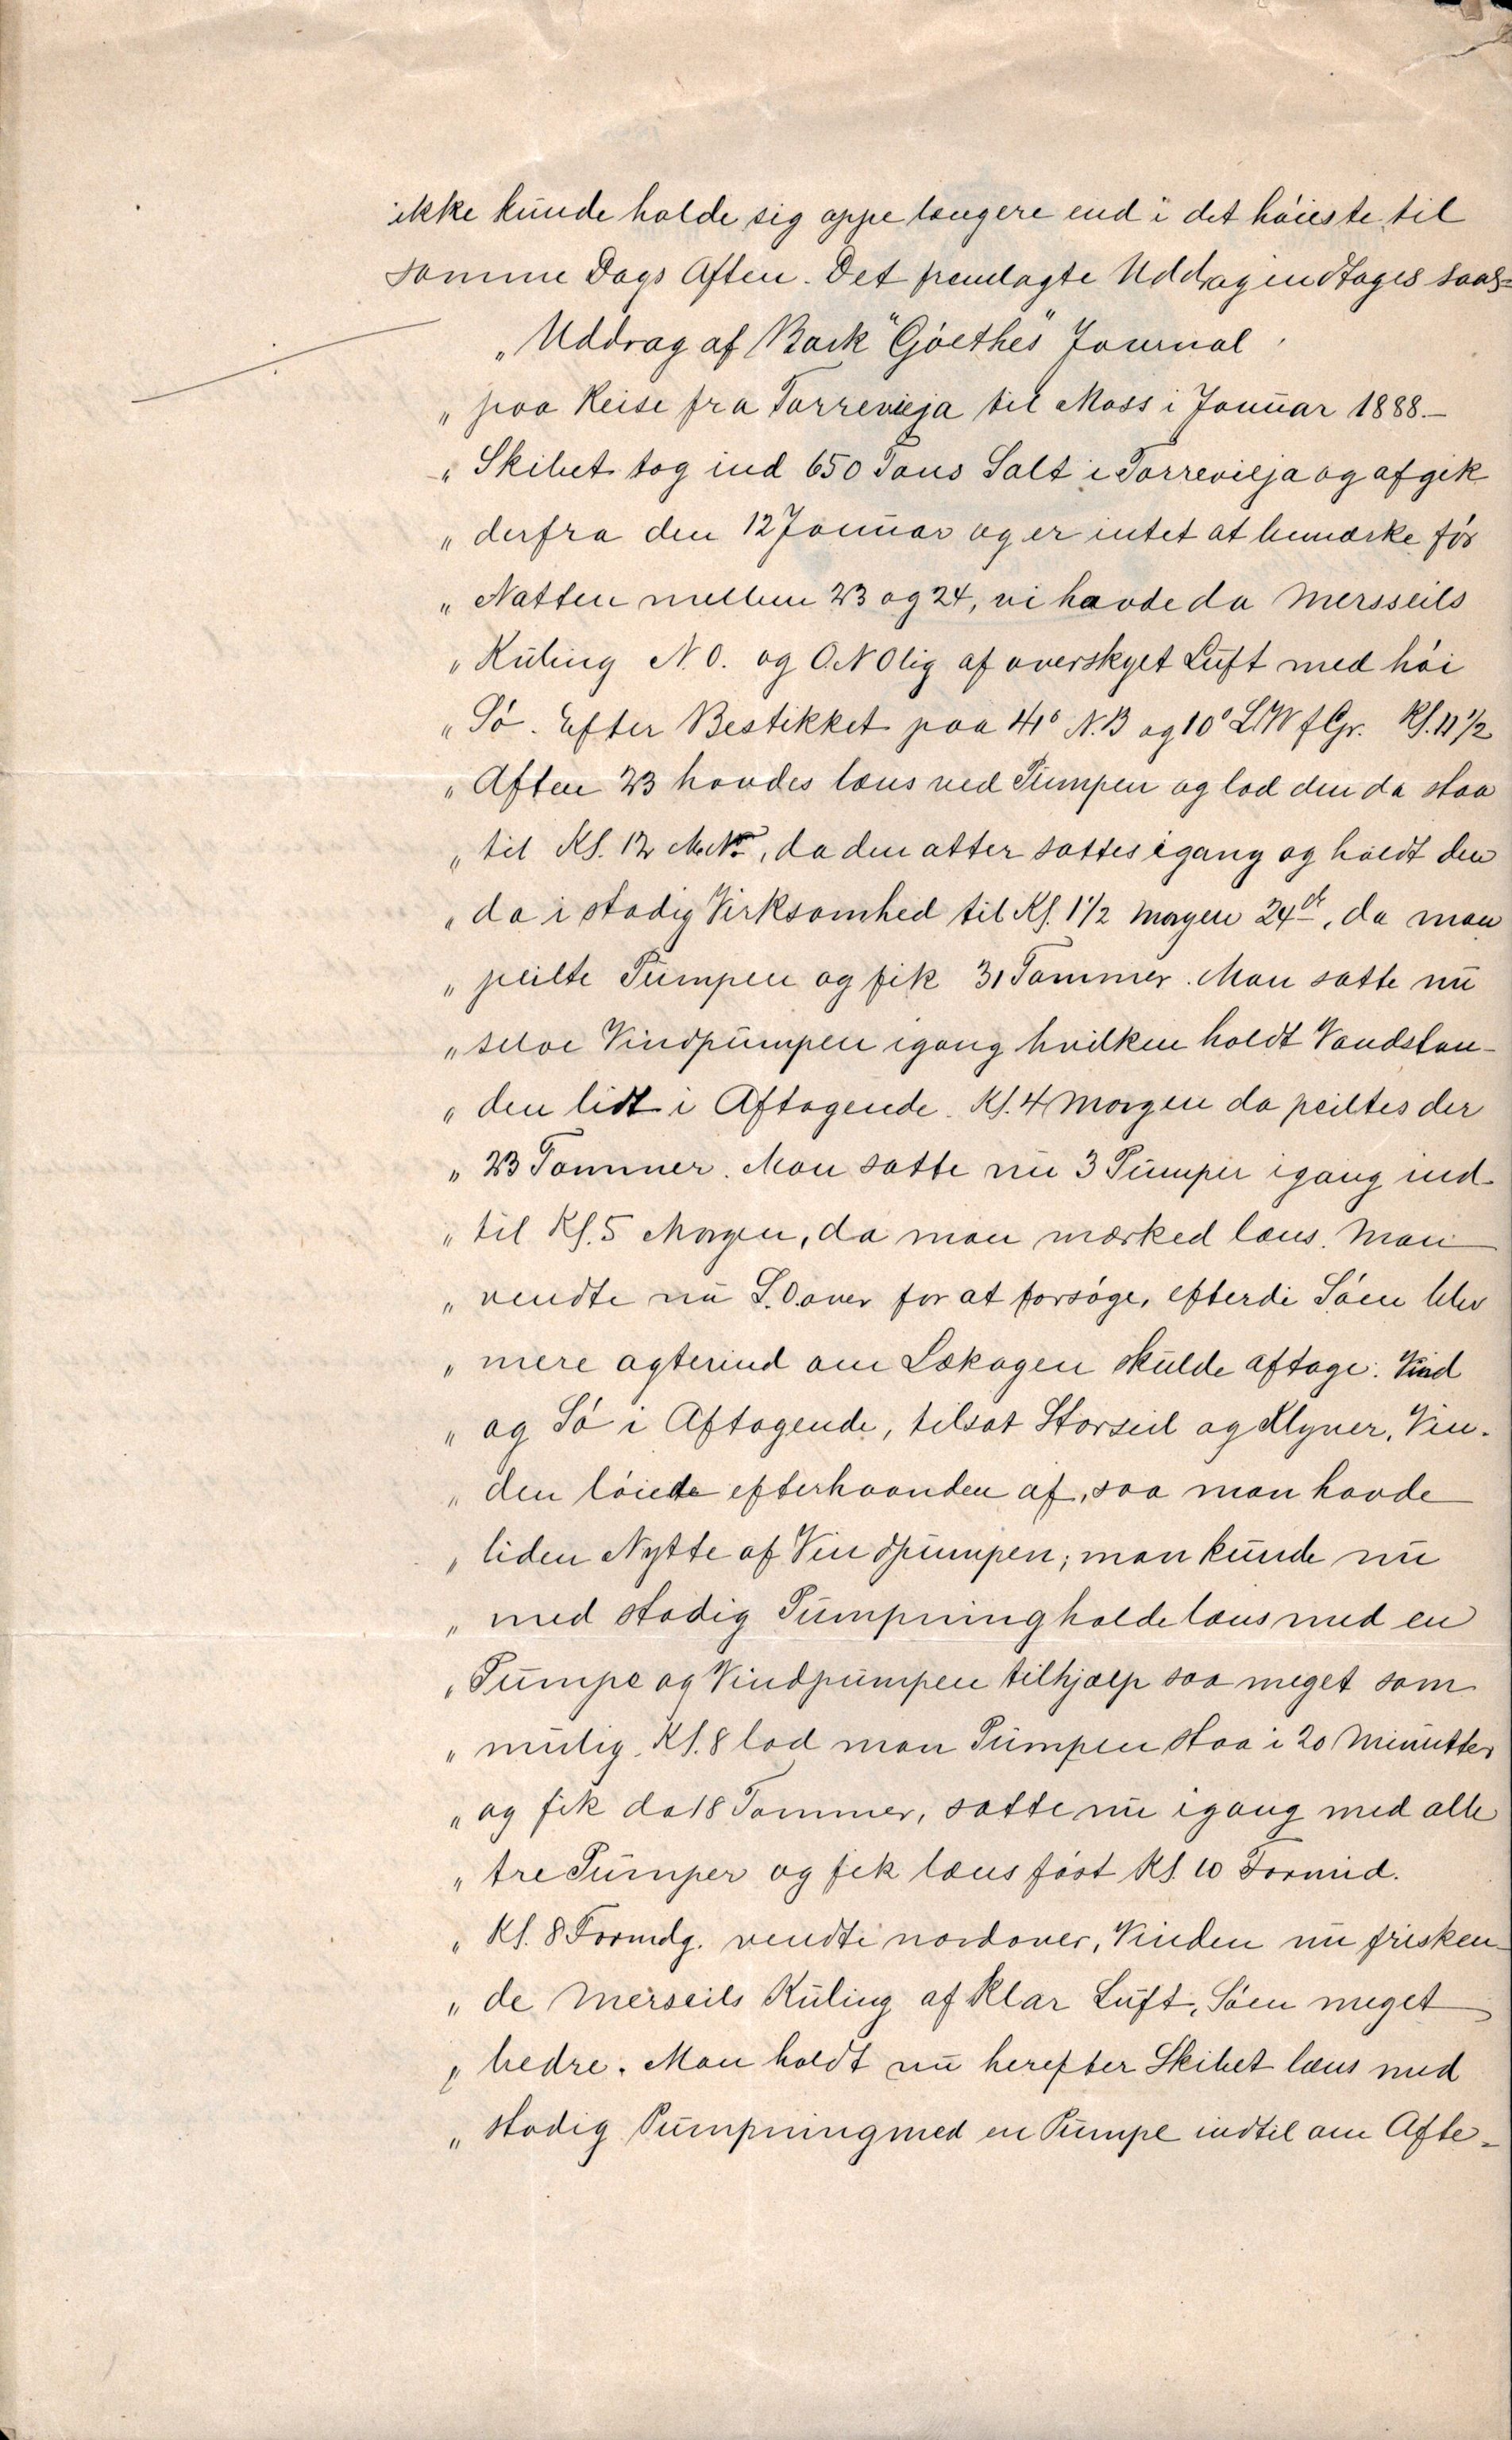 ikke kunde holde sig oppe længere end i det høieste til
samme Dags Aften. Det fremlagte Uddrag indtages saal=
„Uddrag af Bark "Gøethes" Journal
„ paa Reise fra Torrevieja til Moss i Januar 1888.-
„ Skibet tog ind 650 Tons Salt i Torrevieja og afgik
„ derfra den 12 Januar og er intet at bemærke før
„ Natten mellem 23 og 24, vi havde da Mersseils
„ Kuling N.O. og O.NOlig af overskyet Luft med høi
„ Sø. Efter Bestikket paa 41° N.B og 10° L.W f Gr. Kl. 11 1/2
„ Aften 23 havdes læns ved Pumpen og lod den da staa
„ til Kl. 12 M.N., da den atter sattes igang og holdt den
„ da i stadig Virksomhed til Kl. 1 1/2 Morgen 24de, da man
„ peilte Pumpen og fik 31 Tommer. Man satte nu
„ selve Vindpumpen igang hvilken holdt Vandstan-
„ den lidt i Aftagende. Kl. 4 Morgen da peiltes der
„ 23 Tommer. Man satte nu 3 Pumper igang ind-
„ til Kl. 5 Morgen, da man mærked læns. Man
„ vendte nu S.O.over for at forsøge, efterdi Søen blev
„ mere agterind om Lækagen skulde aftage. Vind
„ og Sø i Aftagende, tilsat Storseil og Klyver. Vin-
„ den løiede efterhaanden af, saa man havde
„ liden Nytte af Vindpumpen; man kunde nu
„ med stadig Pumpning holde læns med en
„ Pumpe og Vindpumpen tilhjælp saa meget som
„ mulig. Kl. 8 lod man Pumpen staa i 20 Minutter
„ og fik da 18 Tommer, satte nu igang med alle
„ tre Pumper og fik læns først Kl. 10 Formid.
„ Kl. 8 Formdg. vendte nordover, Vinden nu frisken-
„ de Merseils Kuling af klar Luft, Søen meget
„ bedre. Man holdt nu herefter Skibet læns med
„ stadig Pumpning med en Pumpe indtil om Afte-